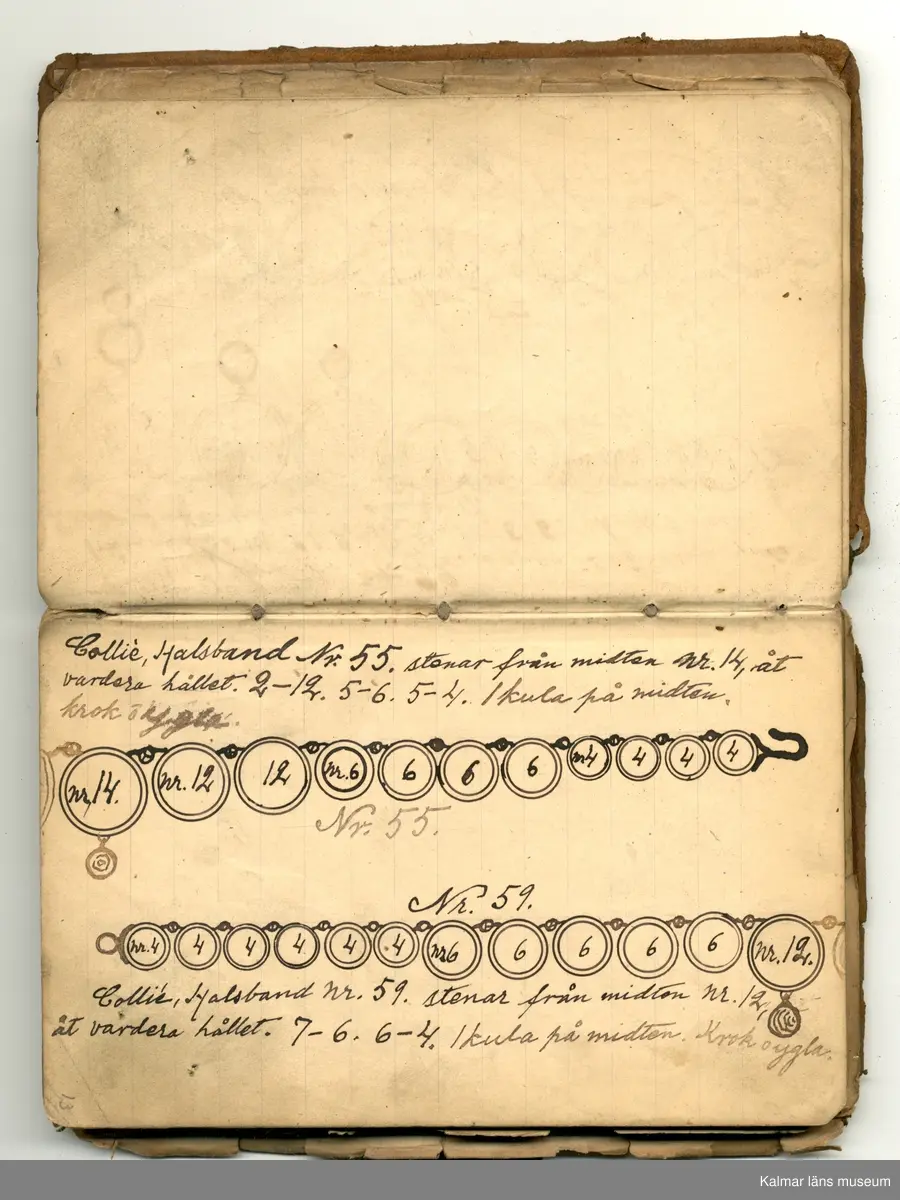 Colliè, Halsband Nr. 55. stenar från midten nr. 14, åt
vardera hållet. 2-12. 5-6. 5-4. 1 kula på midten.
krok o ygla.
nr. 14. nr. 12 12 nr. 6 6 6 6 nr4 4 4 4
Nr. 55.
Nr. 59.
nr. 4 4 4 4 4 4 nr6 6 6 6 6 nr. 12.
Collié, Halsband nr. 59. stenar från midten nr. 12,
åt vardera hållet. 7-6. 6-4. 1 kula på midten. Krok o ygla.
13
Kalmar läns museum